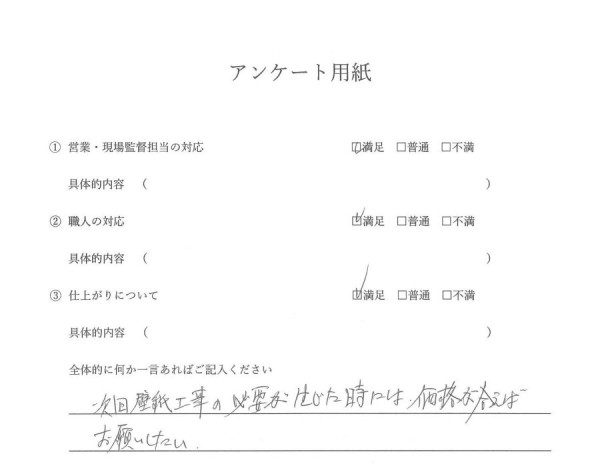 アンケート用紙
① 営業・現場監督担当の対応 ☑満足 □普通 □不満
具体的内容 （ ）
② 職人の対応 ☑満足 □普通 □不満
具体的内容 （ ）
③ 仕上がりについて ☑満足 □普通 □不満
具体的内容 （ ）
全体的に何か一言あればご記入ください
次回壁紙工事の必要が生じた時には、価格が合えば
お願いしたい.